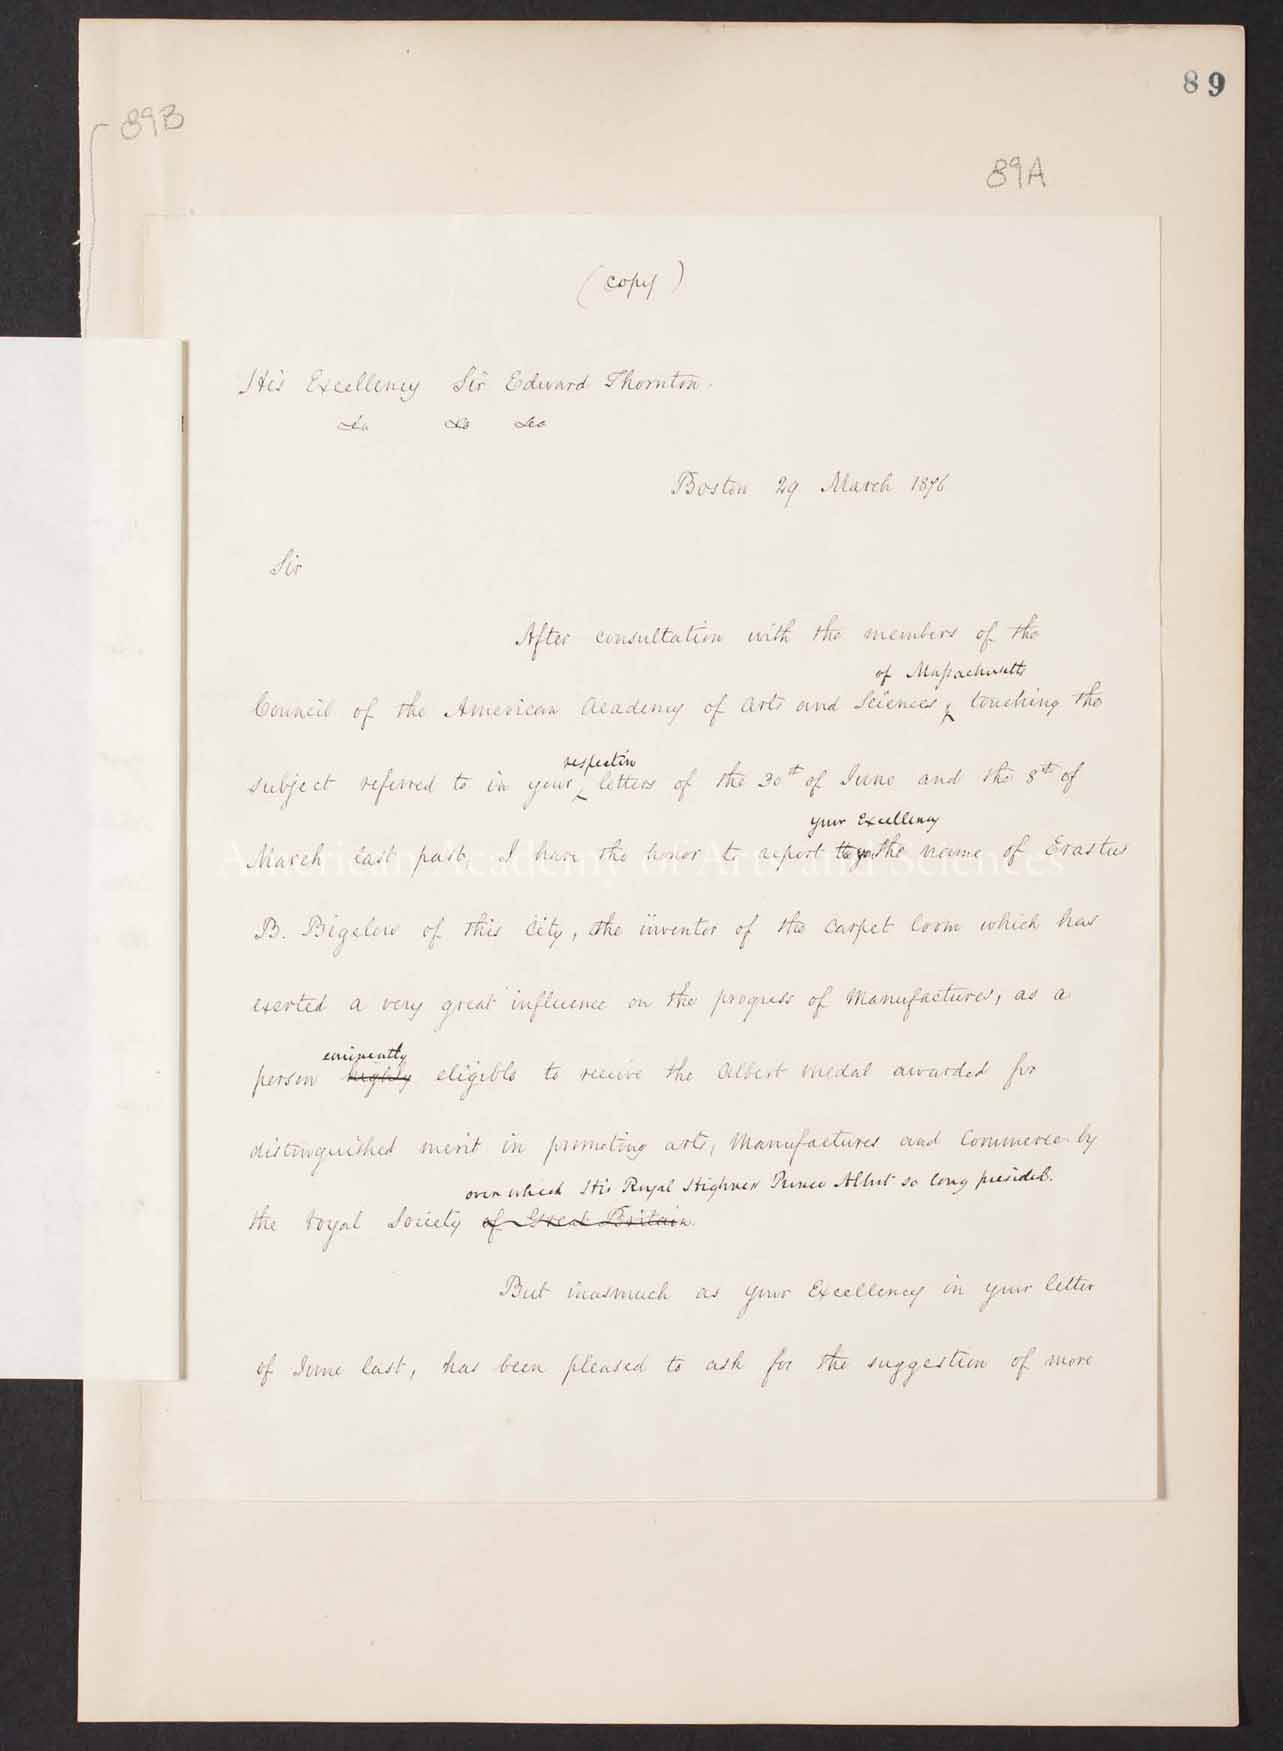 89
89B
89A
(copy)
His Excellency Sir Edward Thornton.
&c &c &c
Boston 29 March 1876
Sir
After consultation with the members of the
of Massachusetts
Council of the American Academy of Arts and Sciences, touching the
respective
subject referred to in your letters of the 30th of June and the 8th of
your Excellency
March last past, I have the honor to report to you the name of Erastus
American Academy of Arts and Sciences
B. Bigelow of this City, the inventor of the Carpet loom which has
exerted a very great influence on the progress of Manufactures, as a
eminently
person highly eligible to receive the Albert medal awarded for
distinguished merit in promoting arts, Manufactures and Commerce by
over which His Royal Highness Prince Albert so long presided.
the Royal Society of Great Britain.
But inasmuch as your Excellency in your letter
of June last, has been pleased to ask for the suggestion of more